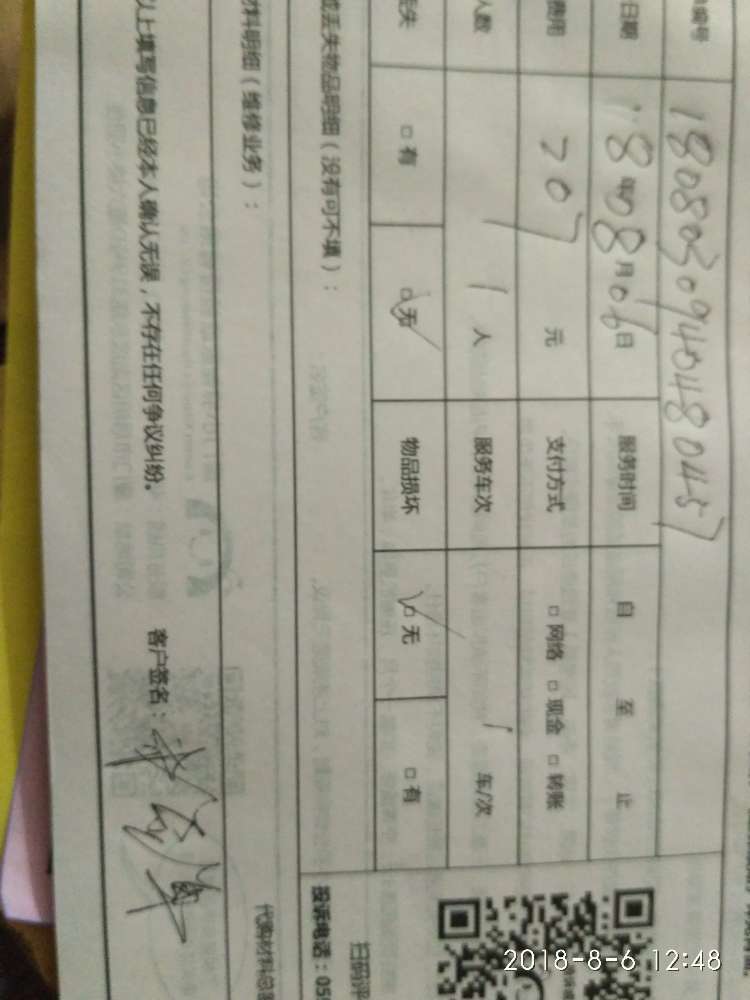 编号 180803094048045
日期 18年08月06日 服务时间 自 至 止
费用 207 元 支付方式 □ 网络 □ 现金 □ 转账
人数 1 人 服务车次 1 车/次
丢失 □ 有 □ 无 物品损坏 □ 无 □ 有
或丢失物品明细（没有可不填）：
材料明细（维修业务）：
代购材料总
以上填写信息已经本人确认无误，不存在任何争议纠纷。 客户签名：
扫码评
投诉电话：05
2018-8-6 12:48